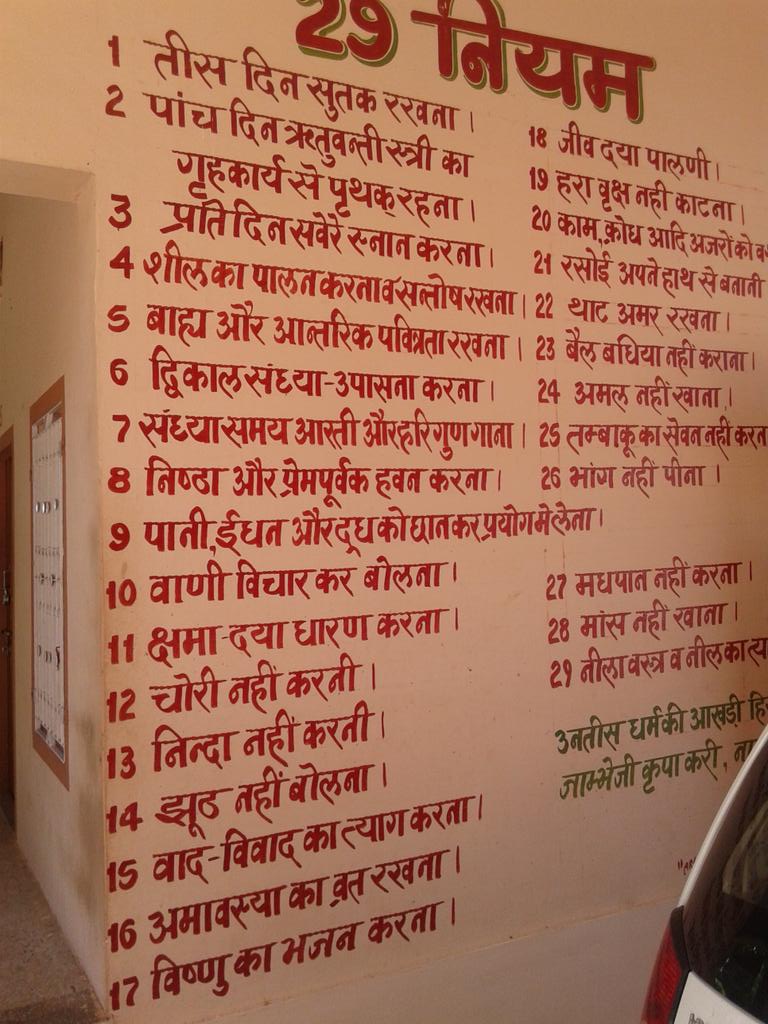 29 नियम
1 तीस दिन सुतक रखना ।
2 पांच दिन ऋतुवन्ती स्त्री का
गृहकार्य से पृथक् रहना ।
3 प्रति दिन सवेरे स्नान करना ।
4 शील का पालन करना व सन्तोष रखना ।
5 बाह्य और आन्तरिक पवित्रता रखना ।
6 द्विकाल संध्या-उपासना करना ।
7 संध्या समय आरती और हरिगुण गाना ।
8 निष्ठा और प्रेमपूर्वक हवन करना ।
9 पानी, ईधन और दूध को छान कर प्रयोग मे लेना ।
10 वाणी विचार कर बोलना ।
11 क्षमा-दया धारण करना ।
12 चोरी नहीं करनी ।
13 निन्दा नहीं करनी ।
14 झूठ नहीं बोलना ।
15 वाद-विवाद का त्याग करना ।
16 अमावस्या का व्रत रखना ।
17 विष्णु का भजन करना ।
18 जीव दया पालणी ।
19 हरा वृक्ष नही काटना ।
20 काम, क्रोध आदि अजरों को
21 रसोई अपने हाथ से बनानी
22 थाट अमर रखना ।
23 बैल बधिया नहीं कराना ।
24 अमल नहीं खाना ।
25 तम्बाकू का सेवन नहीं
26 भांग नहीं पीना ।
27 मधपान नहीं करना ।
28 मांस नहीं खाना ।
29 नीला वस्त्र व नील का
उनतीस धर्म की आखडी
जाम्भेजी कृपा करी,